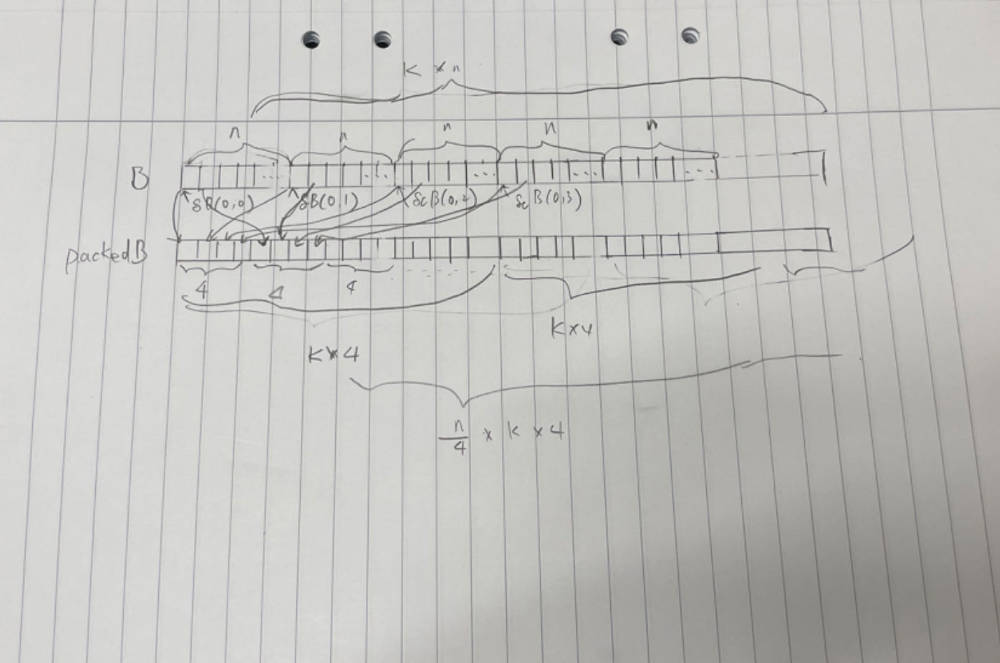 K × n
n n n n n
B
&B(0,0) &B(0,1) &B(0,2) &B(0,3)
packedB
4 4 4
K×4
K×4
n/4 × K × 4